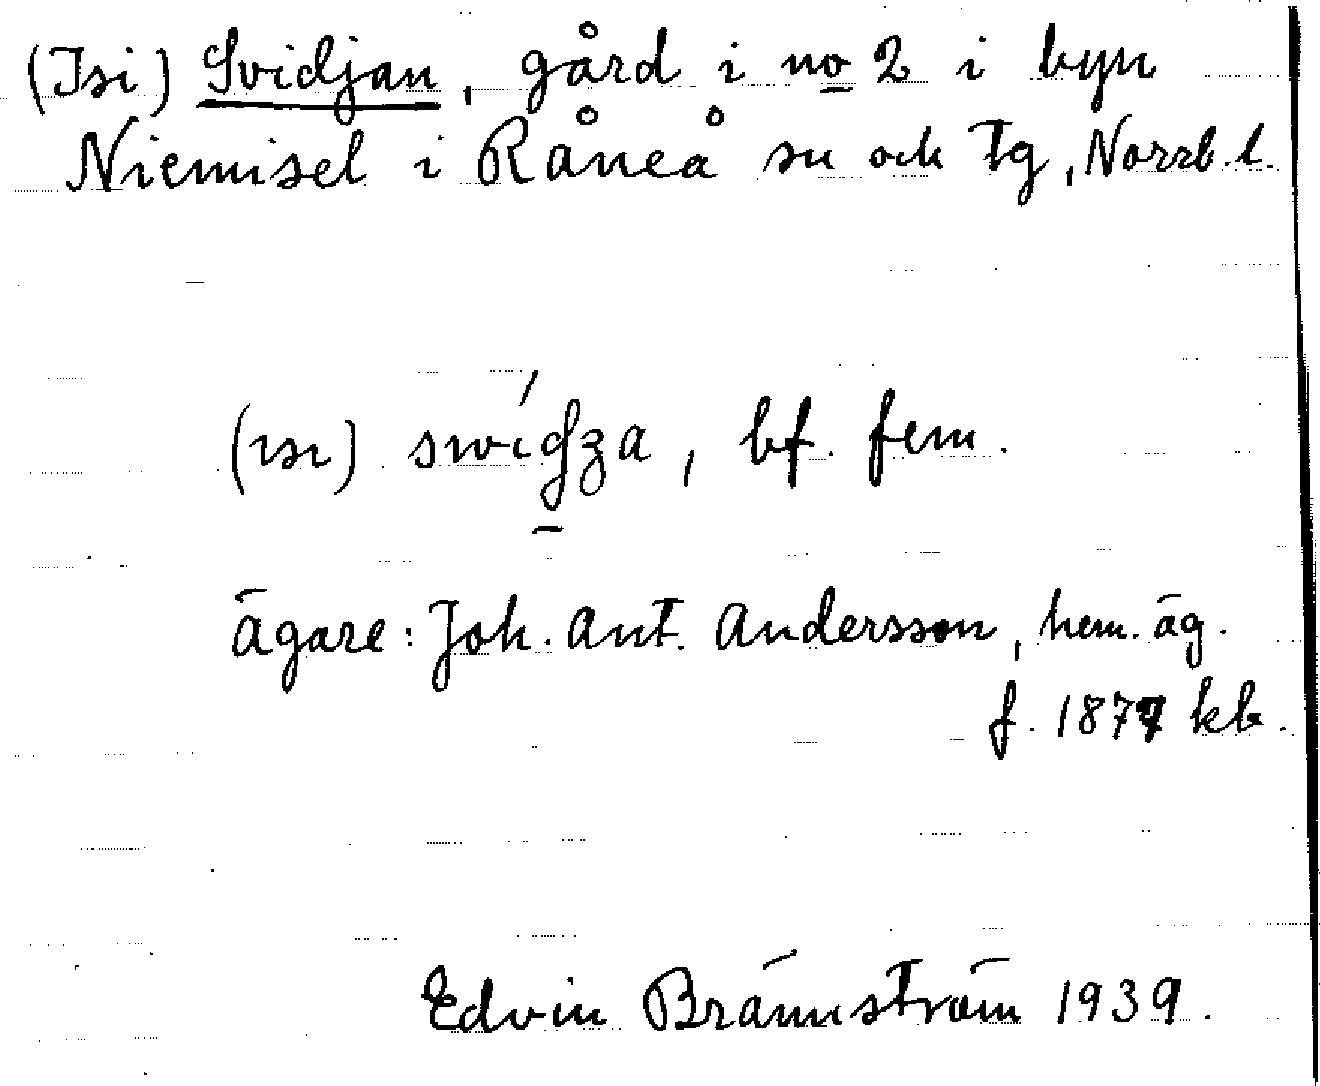 (Isi) Svidjan, gård i no 2 i byn
Niemisel i Råneå sn och tg, Norrb. l.
(ısı) , bf. fem.
ägare: Joh. Ant. Andersson, hem. äg.
f. 1877 kb.
Edvin Brännström 1939.